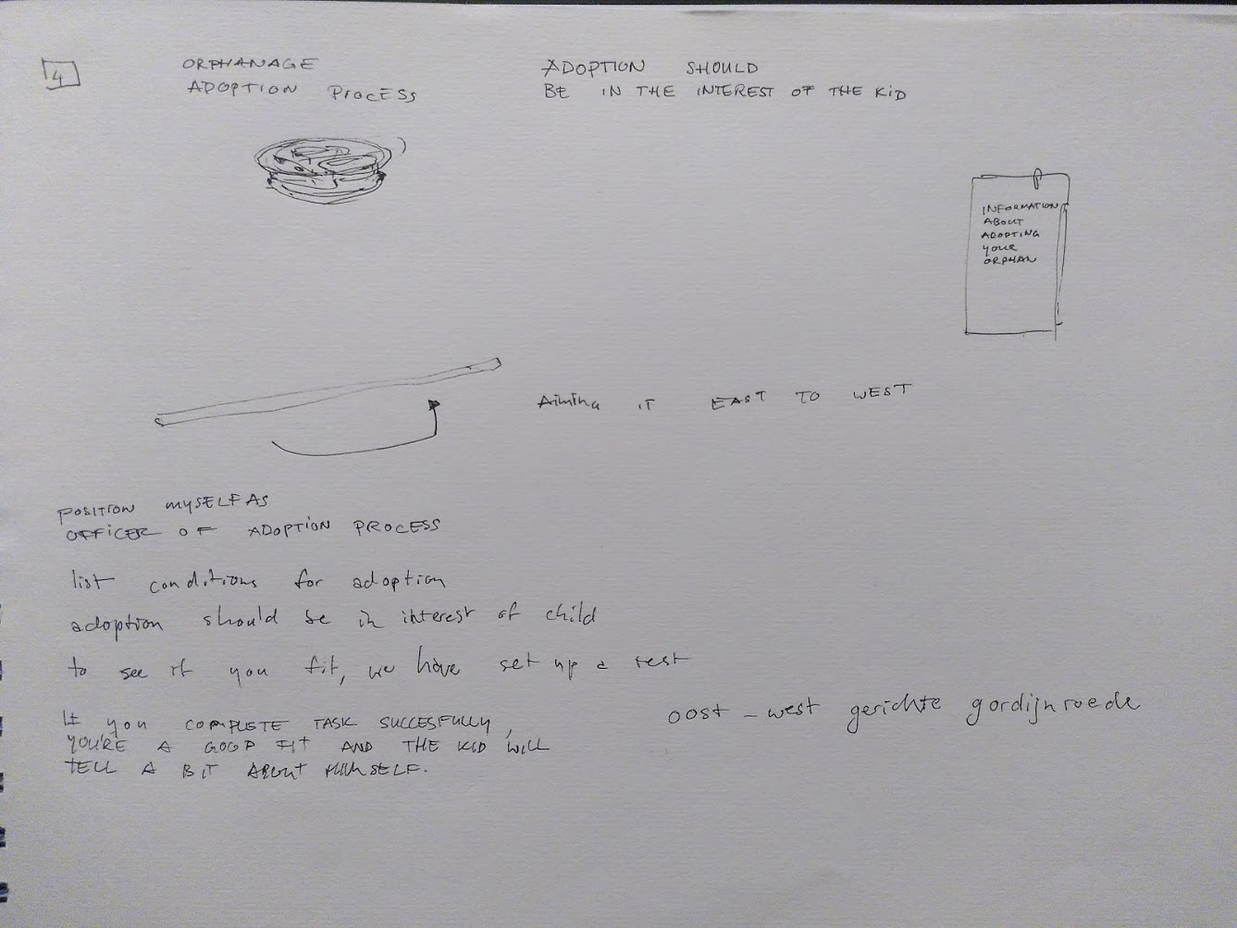 4
ORPHANAGE
ADOPTION PROCESS
ADOPTION SHOULD
BE IN THE INTEREST OF THE KID
INFORMATION
ABOUT
ADOPTING
YOUR
ORPHAN
Aiming IT EAST TO WEST
POSITION MYSELF AS
OFFICER OF ADOPTION PROCESS
list conditions for adoption
adoption should be in interest of child
to see if you fit, we have set up a test
If you COMPLETE TASK SUCCESFULLY,
YOU'RE A GOOD FIT AND THE KID WILL
TELL A BIT ABOUT HIMSELF.
oost - west gerichte gordijnroede